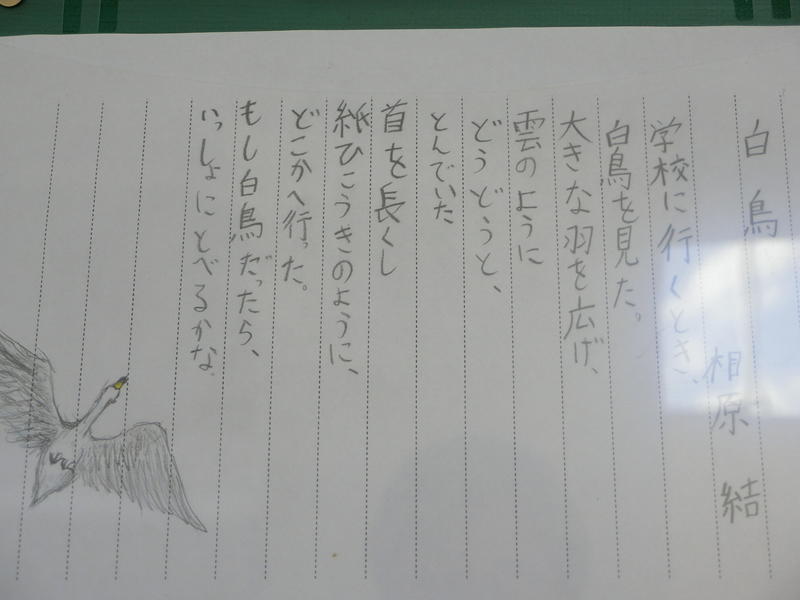 白鳥
相原 結
学校に行くとき、
白鳥を見た。
大きな羽を広げ、
雲のように
どうどうと、
とんでいた
首を長くし
紙ひこうきのように、
どこかへ行った。
もし白鳥だったら、
いっしょにとべるかな。